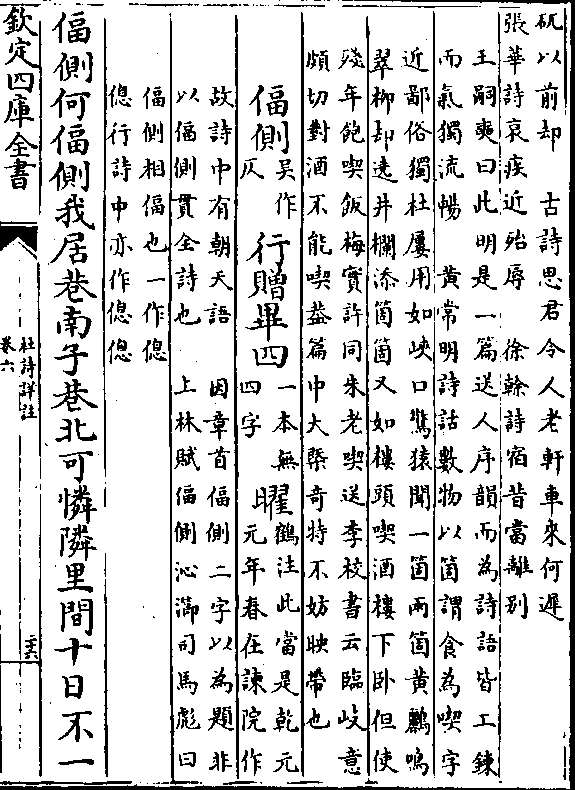 矹以前却　古詩思君令人老軒車來何遲
張華詩衰疾近殆辱　徐幹詩宿昔當離别
王嗣奭曰此明是一篇送人序韻而為詩語皆工鍊
而氣獨流暢　黄常明詩話數物以箇謂食為喫字
近鄙俗獨杜屢用如峽口驚猿聞一箇兩箇黄鸝鳴
翠柳却遶井欄添箇箇又如樓頭喫酒樓下卧但使
殘年飽喫飯梅實許同朱老喫送李校書云臨岐意
頗切對酒不能喫葢篇中大槩奇特不妨映帶也
偪側吳作仄行贈畢四一本無四字曜鶴注此當是乾元元年春在諫院作
故詩中有朝天語　因章首偪側二字以為題非
以偪側貫全詩也　上林賦偪側泌㵥司馬彪曰
偪側相偪也一作偬
偬行詩中亦作偬偬
偪側何偪側我居巷南子巷北可憐隣里間十日不一
欽定四庫全書
杜詩詳註
卷六
二六